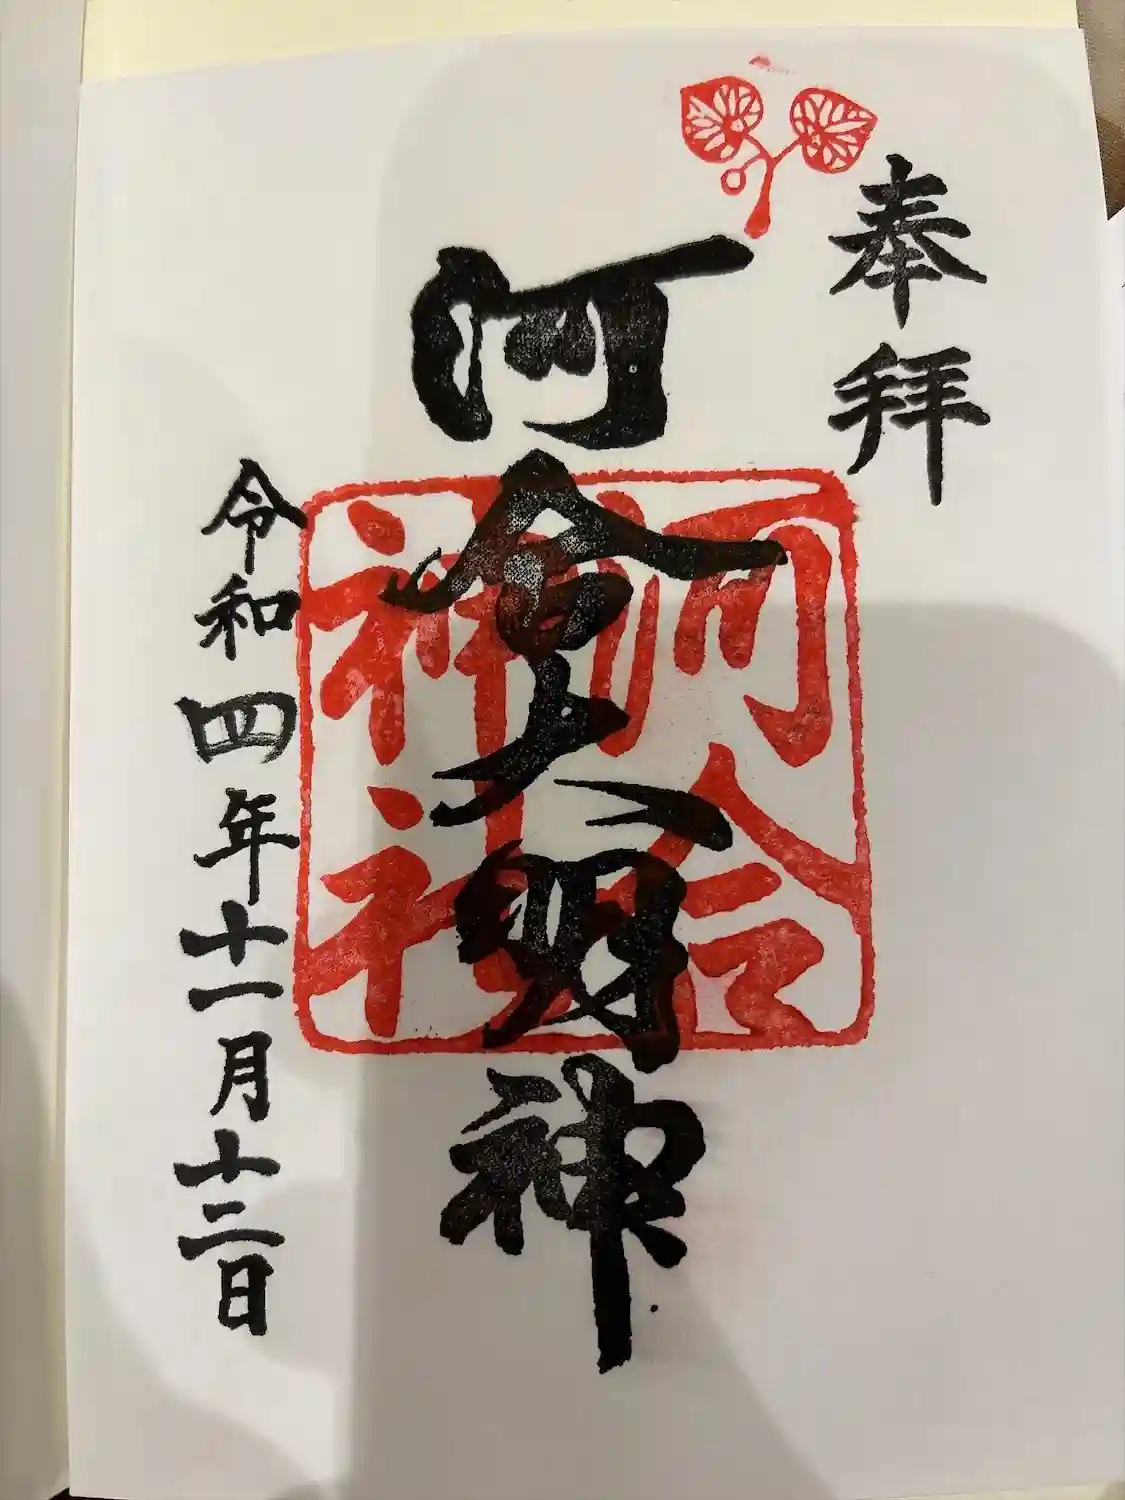 奉拝
河合大明神
河合
神社
令和四年十一月十三日